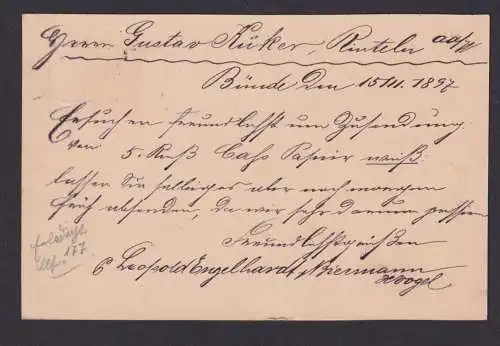 Herrn Gustav Küker, Rinteln a/W
Bünde den 15 III. 1897
Ersuchen freundlichst um Zusendung
von 5. Rieß Papier weiß.
lassen Sie selbiges aber noch morgen
früh absenden, da wir sehr darum
Freundschaftl. grüßen
Leopold Engelhardt & Biermann
177